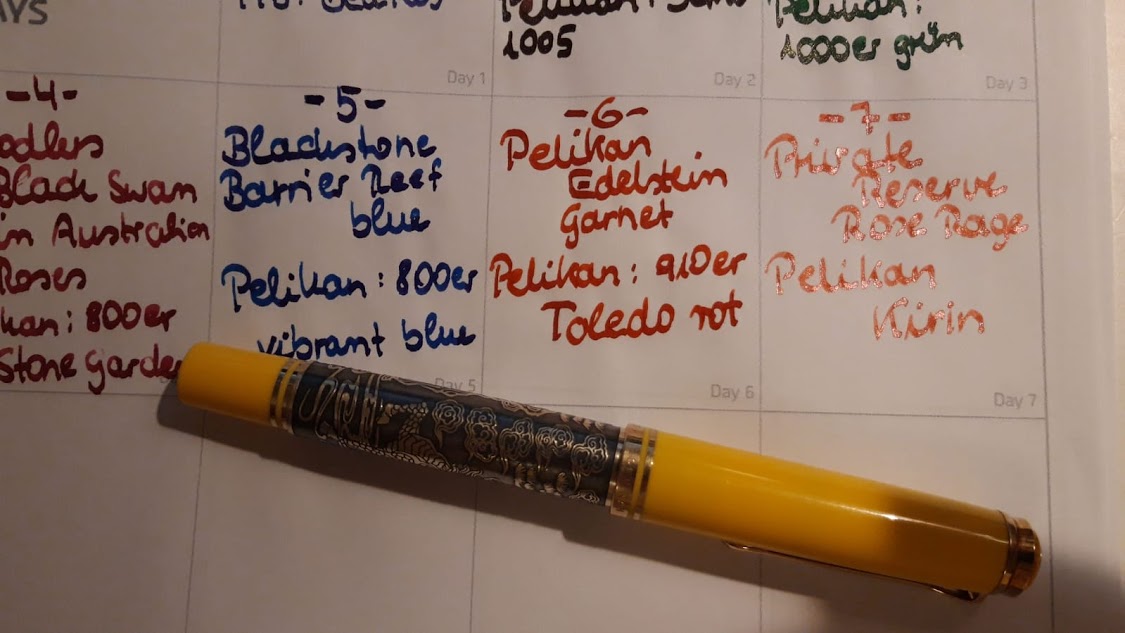 AYS
Day 1
1005
Day 2
Pelikan:
1000er grün
Day 3
-4-
odlers
Black Swan
in Australian
Roses
kan: 800er
Stone Garden
-5-
Blackstone
Barrier Reef
blue
Pelikan: 800er
vibrant blue
Day 5
-6-
Pelikan
Edelstein
Garnet
Pelikan: 910er
Toledo rot
Day 6
-7-
Private
Reserve
Rose Rage
Pelikan
Kirin
Day 7